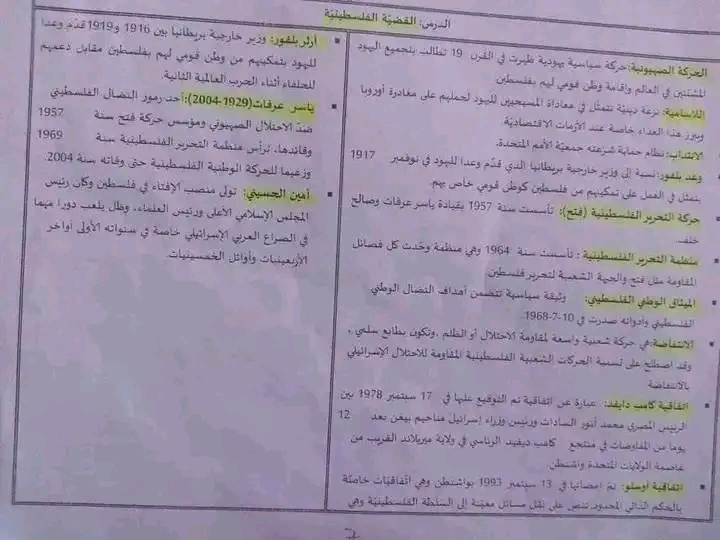 الدرس: القضيّة الفلسطينيّة
الحركة الصهيونية: حركة سياسية يهودية ظهرت في القرن 19 تطالب بتجميع اليهود
المشتتين في العالم وإقامة وطن قومي لهم بفلسطين
اللاسامية: نزعة دينيّة تتمثّل في معاداة المسيحيين لليهود لحملهم على مغادرة أوروبا
ويبرز هذا العداء خاصة عند الأزمات الاقتصاديّة.
الانتداب: نظام حماية شرّعته جمعيّة الأمم المتحدة.
وعد بلفور: نسبة إلى وزير خارجية بريطانيا الذي قدّم وعدا لليهود في نوفمبر 1917
يتمثل في العمل على تمكينهم من فلسطين كوطن قومي خاص بهم.
حركة التحرير الفلسطينية (فتح): تأسست سنة 1957 بقيادة ياسر عرفات وصالح
خلف.
منظمة التحرير الفلسطينية : تأسست سنة 1964 وهي منظمة وحّدت كل فصائل
المقاومة مثل فتح والجبهة الشعبية لتحرير فلسطين
الميثاق الوطني الفلسطيني: وثيقة سياسية تتضمن أهداف النضال الوطني
الفلسطيني وأدواته صدرت في 10-7-1968.
الانتفاضة: هي حركة شعبية واسعة لمقاومة الاحتلال أو الظلم ،وتكون بطابع سلمي ،
وقد اصطلح على تسمية الحركات الشعبية الفلسطينية المقاومة للاحتلال الإسرائيلي
بالانتفاضة
اتفاقية كامب دايفد: عبارة عن اتفاقية تم التوقيع عليها في 17 سبتمبر 1978 بين
الرئيس المصري محمد أنور السادات ورئيس وزراء إسرائيل مناحيم بيغن بعد 12
يوما من المفاوضات في منتجع كامب ديفيد الرئاسي في ولاية ميريلاند القريب من
عاصمة الولايات المتحدة واشنطن
اتفاقية أوسلو: تمّ امضائها في 13 سبتمبر 1993 بواشنطن وهي اتّفاقيّات خاصّة
بالحكم الذاتي المحدود تنصّ على نقل مسائل معيّنة إلى السلطة الفلسطينيّة وهي
أرثر بلفور: وزير خارجية بريطانيا بين 1916 و1919 قدّم وعدا
لليهود بتمكينهم من وطن قومي لهم بفلسطين مقابل دعمهم
للحلفاء أثناء الحرب العالمية الثانية.
ياسر عرفات(1929-2004): أحد رموز النضال الفلسطيني
ضدّ الاحتلال الصهيوني ومؤسس حركة فتح سنة 1957
وقائدها، ترأس منظمة التحرير الفلسطينية سنة 1969
وزعيما للحركة الوطنية الفلسطينية حتى وفاته سنة 2004.
أمين الحسيني: تولى منصب الإفتاء في فلسطين وكان رئيس
المجلس الإسلامي الأعلى ورئيس العلماء، وظل يلعب دورا مهما
في الصراع العربي الإسرائيلي خاصة في سنواته الأولى أواخر
الأربعينيات وأوائل الخمسينيات.